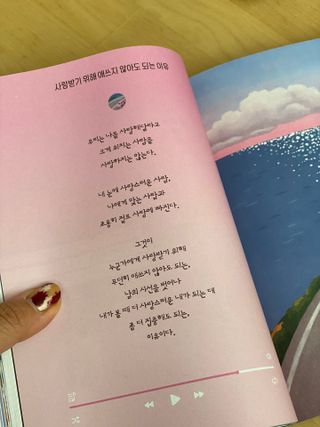 사랑받기 위해 애쓰지 않아도 되는 이유
우리는 나를 사랑해달라고
크게 외치는 사람을
사랑하지는 않는다.
내 눈에 사랑스러운 사람,
나에게 맞는 사람과
조용히 절로 사랑에 빠진다.
그것이
누군가에게 사랑받기 위해
부단히 애쓰지 않아도 되는,
남의 시선을 벗어나
내가 볼 때 더 사랑스러운 내가 되는 데
좀 더 집중해도 되는,
이유이다.